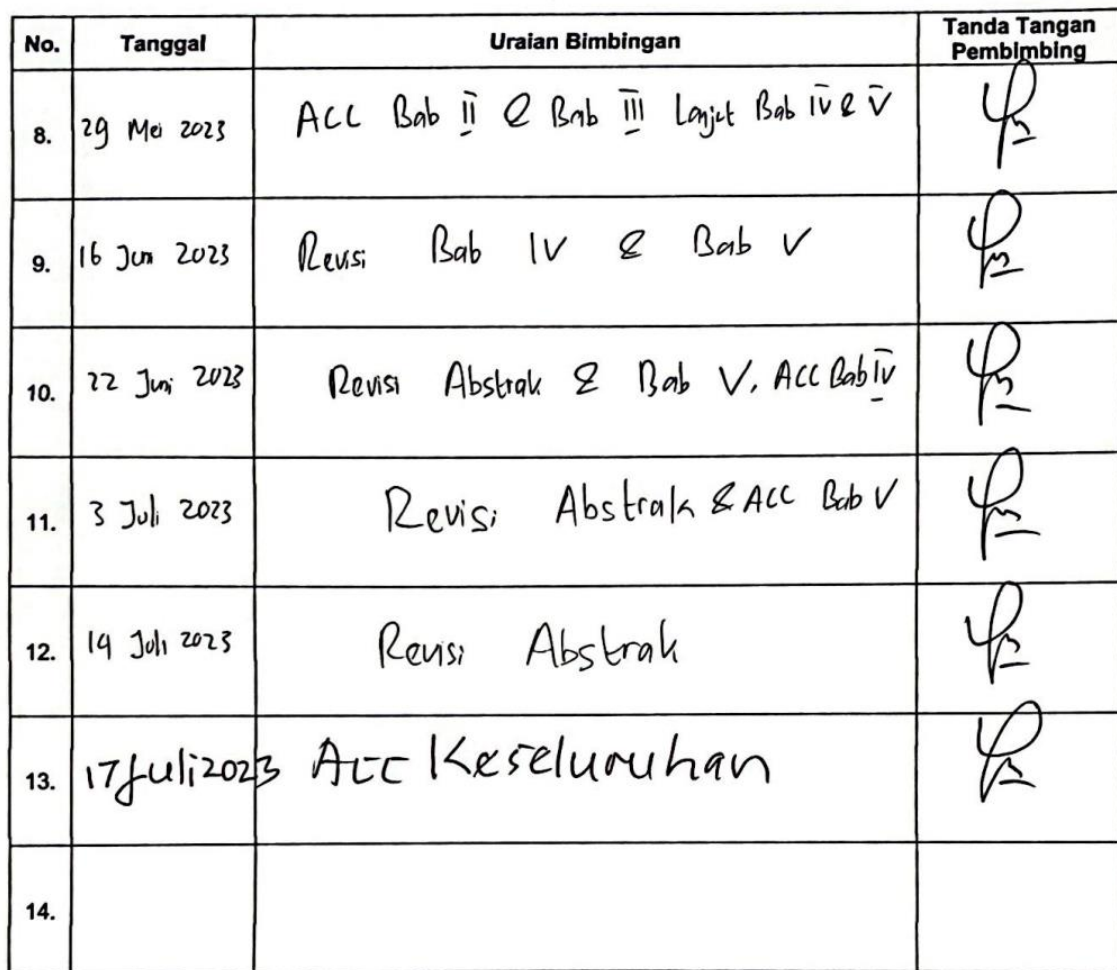 No. Tanggal Uraian Bimbingan Tanda Tangan Pembimbing
8. 29 Mei 2023 ACC Bab II & Bab III Lanjut Bab IV & V
9. 16 Juni 2023 Revisi Bab IV & Bab V
10. 22 Juni 2023 Revisi Abstrak & Bab V, ACC Bab IV
11. 3 Juli 2023 Revisi Abstrak & ACC Bab V
12. 14 Juli 2023 Revisi Abstrak
13. 17 Juli 2023 Acc Keseluruhan
14.